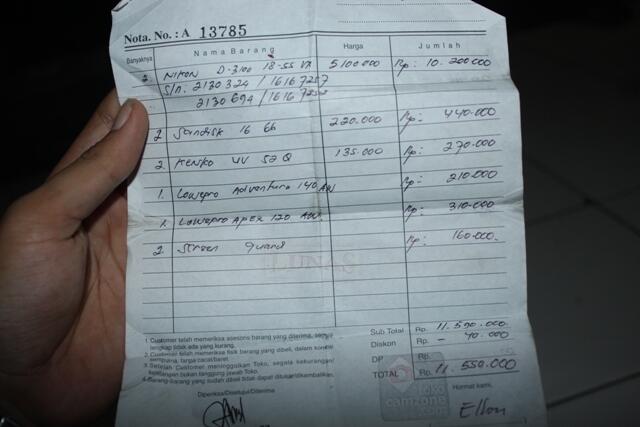 Nota. No. : A 13785
Banyaknya Nama Barang Harga Jumlah
2. NIKON D-3100 18-55 VR 5100000 Rp: 10.200000
S/n. 2130324 / 16167257
2130694 / 1616
2 Sandisk 16 Gb 220.000 Rp: 440.000
2. Kenko UV 52 Q 135.000 Rp: 270.000
1. Lowepro Adventura 140 AW Rp: 210.000
1. Lowepro Apex 120 AW Rp: 310.000
2. Screen guard Rp: 160.000
LUNAS
1. Customer telah memeriksa asesoris barang yang diterima,
lengkap tidak ada yang kurang.
2. Customer telah memeriksa fisik barang yang dibeli, dalam
sempurna, tanpa cacat/baret.
3. Setelah Customer meninggalkan Toko, segala kekurangan/
kehilangan bukan tanggung jawab Toko.
4. Barang-barang yang sudah dibeli tidak dapat ditukar/dikembalikan.
Sub Total Rp. 11.590.000
Diskon Rp. - 40.000
DP Rp.
TOTAL Rp. 11.550.000
toko
camzone.com
Diperiksa/Disetujui/Diterima Hormat kami,
Ellon